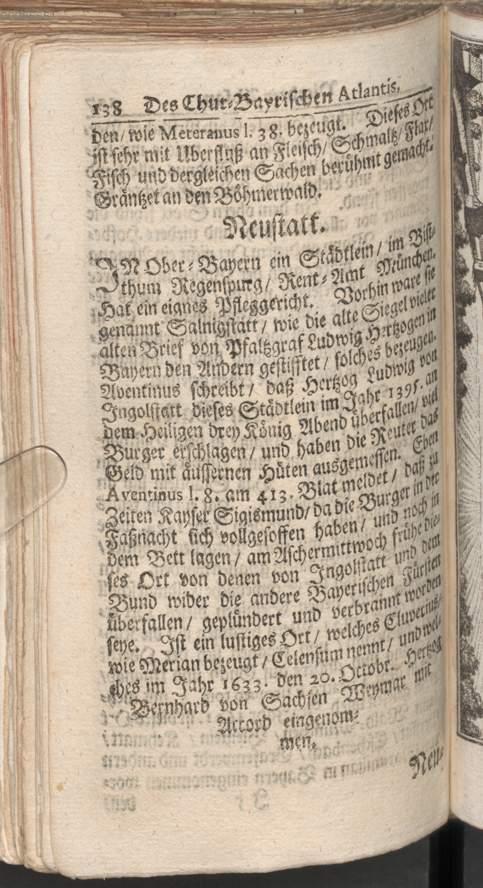 138 Des Chur-Bayrischen Atlantis,
den/ wie Meteranus l. 38. bezeugt. Dieses Ort
ist sehr mit Uberfluß an Fleisch/ Schmaltz/ Flax/
Fisch und dergleichen Sachen berühmt gemacht.
Gräntzet an den Böhmerwald.
Neustatt.
IN Ober-Bayern ein Städtlein/ im Bist-
thum Regenspurg/ Rent-Amt München.
Hat ein eignes Pfleggericht. Vorhin ware sie
genannt Salnigstatt/ wie die alte Siegel vieler
alten Brief von Pfaltzgraf Ludwig Hertzogen in
Bayern den Andern gestifftet/ solches bezeugen.
Aventinus schreibt/ daß Hertzog Ludwig von
Ingolstatt dieses Städtlein im Jahr 1395. an
dem Heiligen drey König Abend überfallen/ viel
Burger erschlagen/ und haben die Reuter das
Geld mit äussernen Hüten ausgemessen. Eben
Aventinus l. 8. am 413. Blat meldet/ daß zu
Zeiten Kayser Sigismund/ da die Burger in der
Faßnacht sich vollgesoffen haben/ und noch in
dem Bett lagen/ am Aschermittwoch frühe die-
ses Ort von denen von Ingolstatt und dem
Bund wider die andere Bayerischen Fürsten
überfallen/ geplündert und verbrannt worden
seye. Ist ein lustiges Ort/ welches Cluverius,
wie Merian bezeugt/ Celensum nennt/ und wel-
ches im Jahr 1633. den 20. Octobr. Hertzog
Bernhard von Sachsen Weymar mit
Accord eingenom-
men.
Neu-